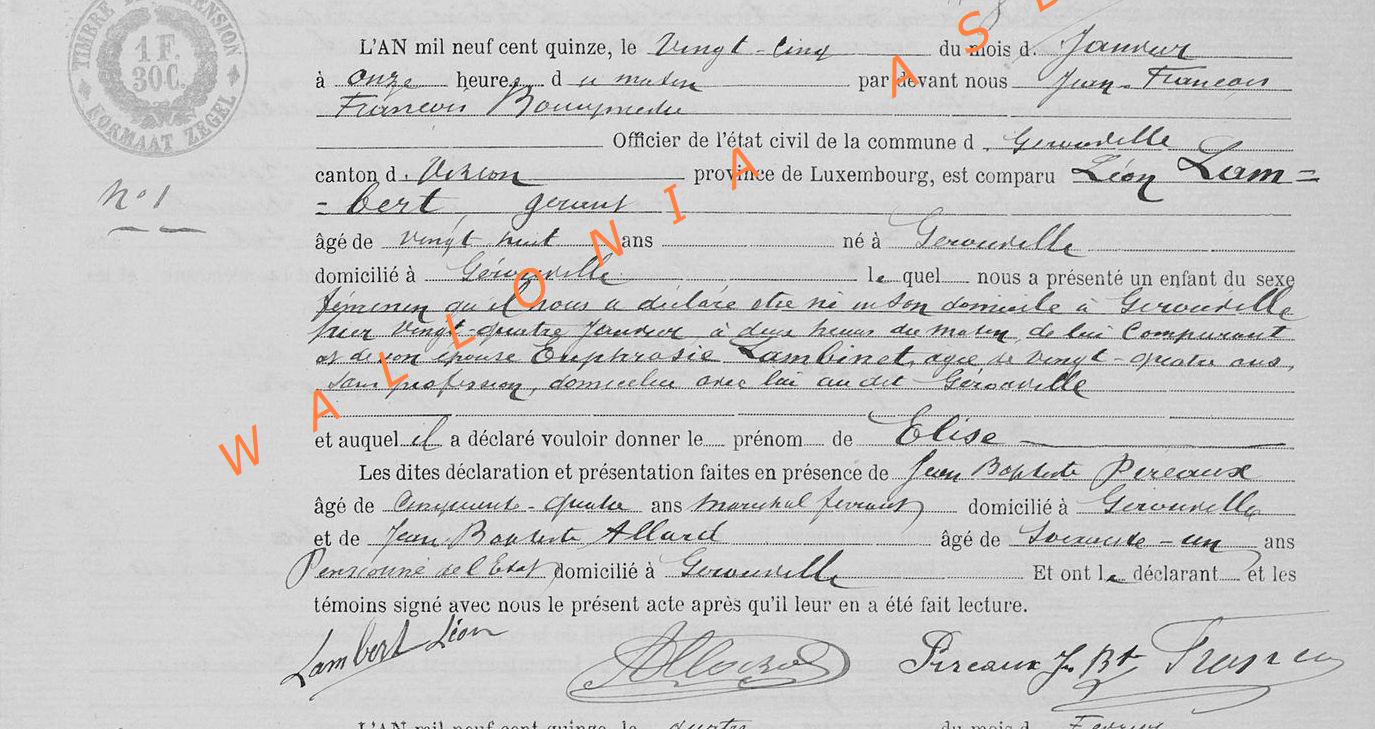 TIMBRE DE DIMENSION
1 F.
30C.
FORMAAT ZEGEL
L'AN mil neuf cent quinze, le vingt-cinq du mois d. Janvier
à onze heures d u matin par devant nous Jean-François
François
Officier de l'état civil de la commune d. Gérouville
canton d. Virton province de Luxembourg, est comparu Léon Lam=
N° 1
=bert, gérant
âgé de vingt huit ans né à Gerouville
domicilié à Gérouville le quel nous a présenté un enfant du sexe
féminin qu'il nous a déclaré être né en son domicile à Gerouville
hier vingt-quatre Janvier à deux heures du matin, de lui Comparant
et de son épouse Euphrasie Lambinet, agée de vingt-quatre ans,
sans profession, domiciliée avec lui au dit Gérouville
et auquel il a déclaré vouloir donner le prénom de Elise
Les dites déclaration et présentation faites en présence de Jean Baptiste Pireaux
âgé de Cinquante-quatre ans maréchal ferrant domicilié à Gerouville
et de Jean Baptiste Allard âgé de Soixante-un ans
Pensionné de l'Etat domicilié à Gerouville Et ont le déclarant et les
témoins signé avec nous le présent acte après qu'il leur en a été fait lecture.
Lambert Léon Allard Pireaux J. Bt François
L'AN mil neuf cent quinze, le quatre du mois d. Fevrier
WALLONIA ASB